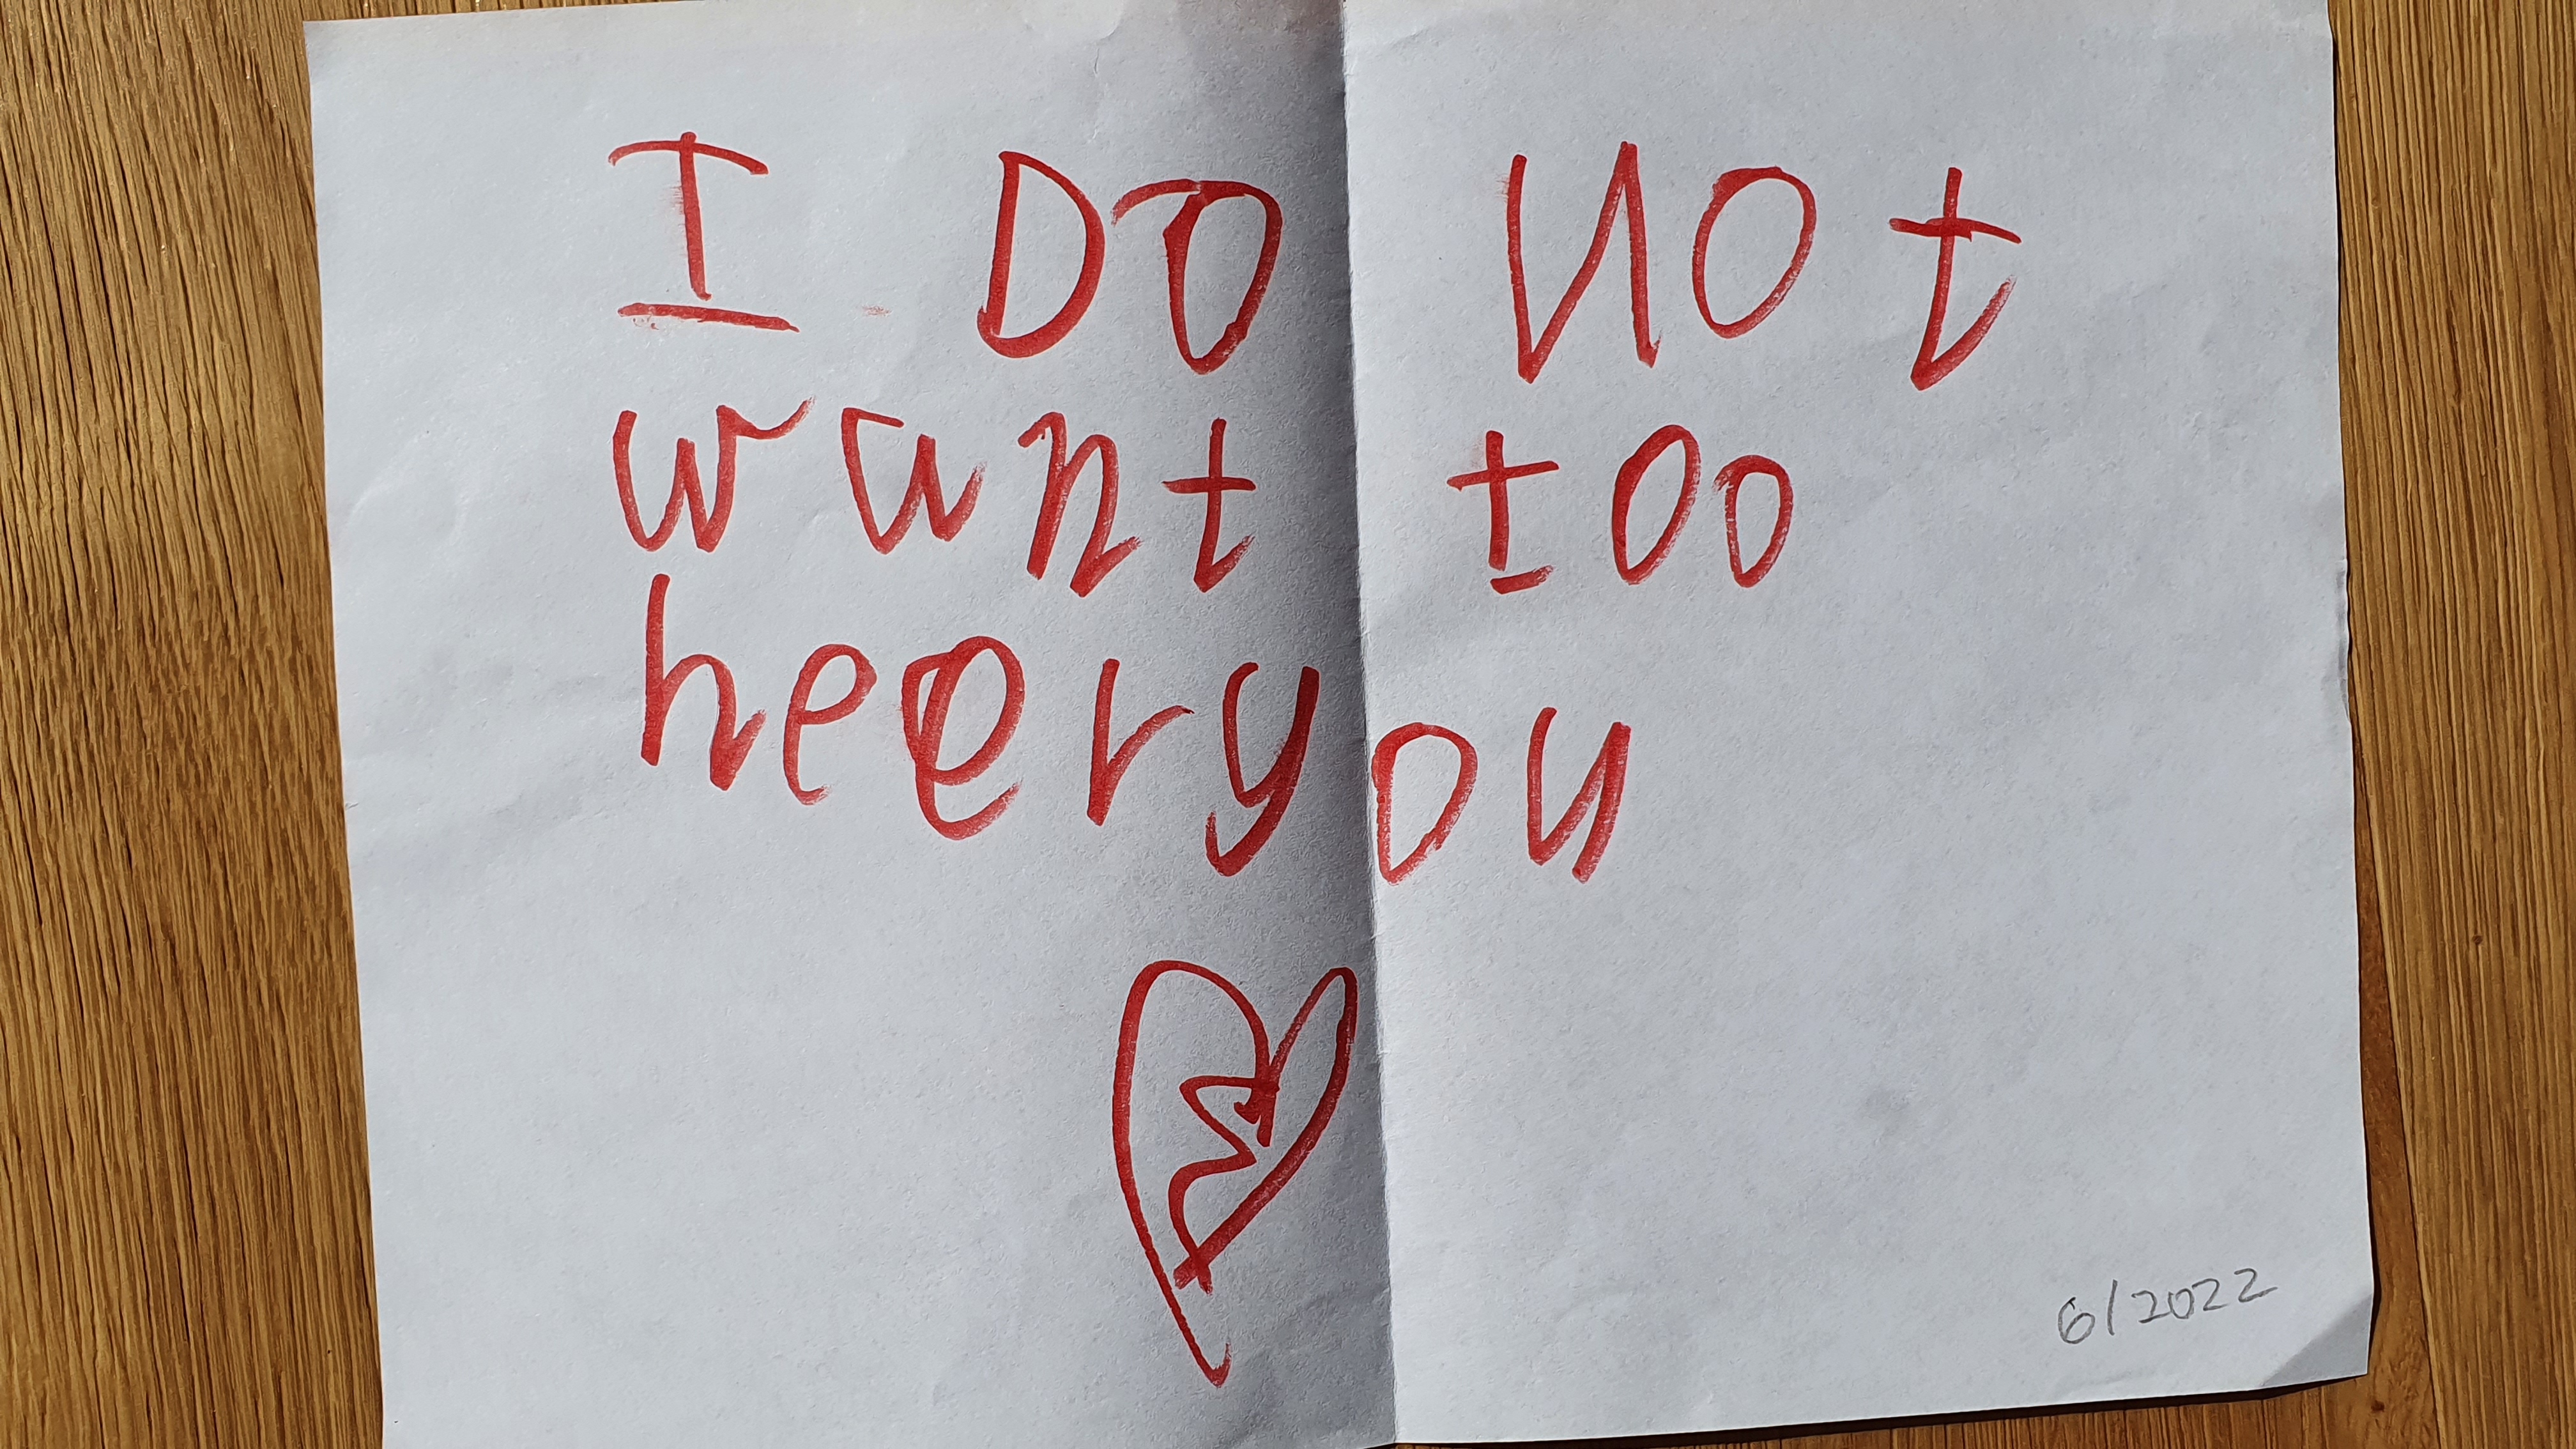 I DO NOt
want too
heeryou
6/2022